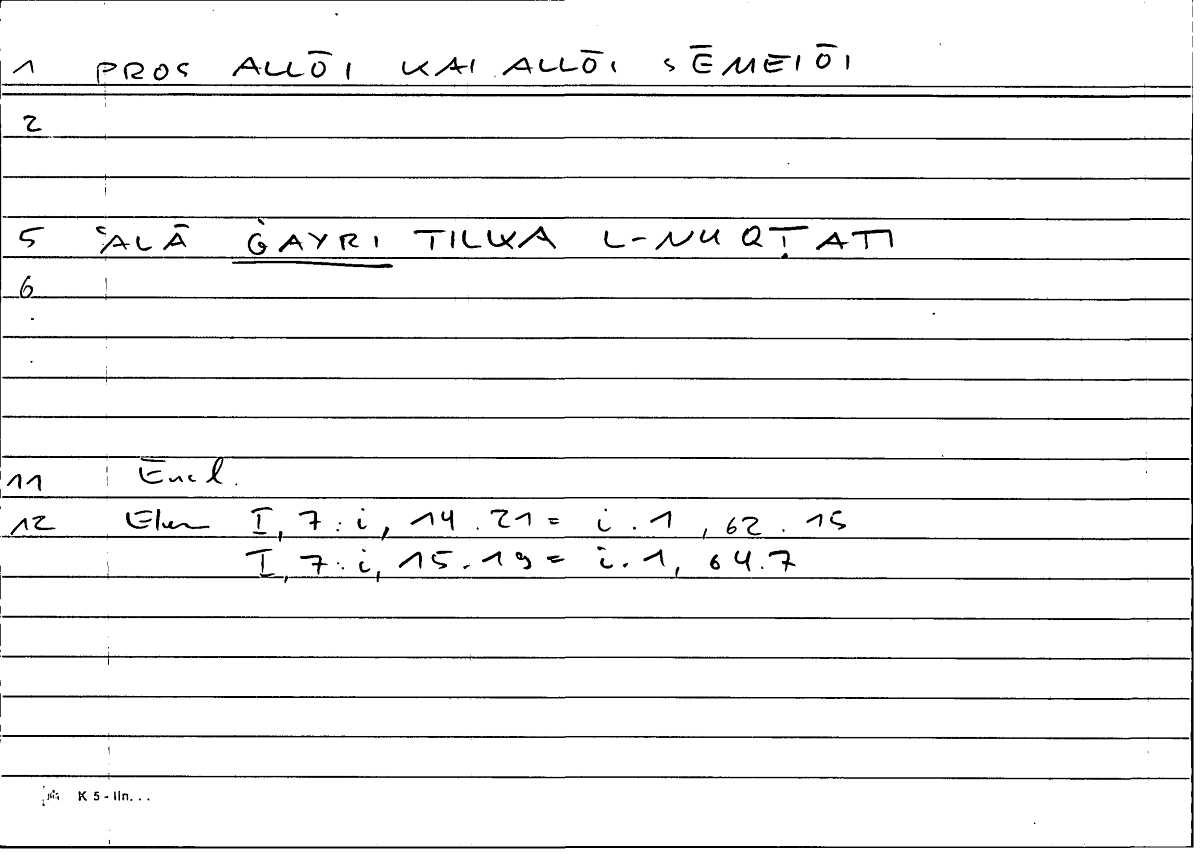 1 PROS ALLŌI KAI ALLŌI SĒMEIŌI
2
5 ʿALĀ ĠAYRI TILKA L-NUQṬATI
6
11 Eucl.
12 Elem I, 7 : i, 14.21 = i.1, 62.15
I, 7 : i, 15.19 = i.1, 64.7
K 5 - lin...